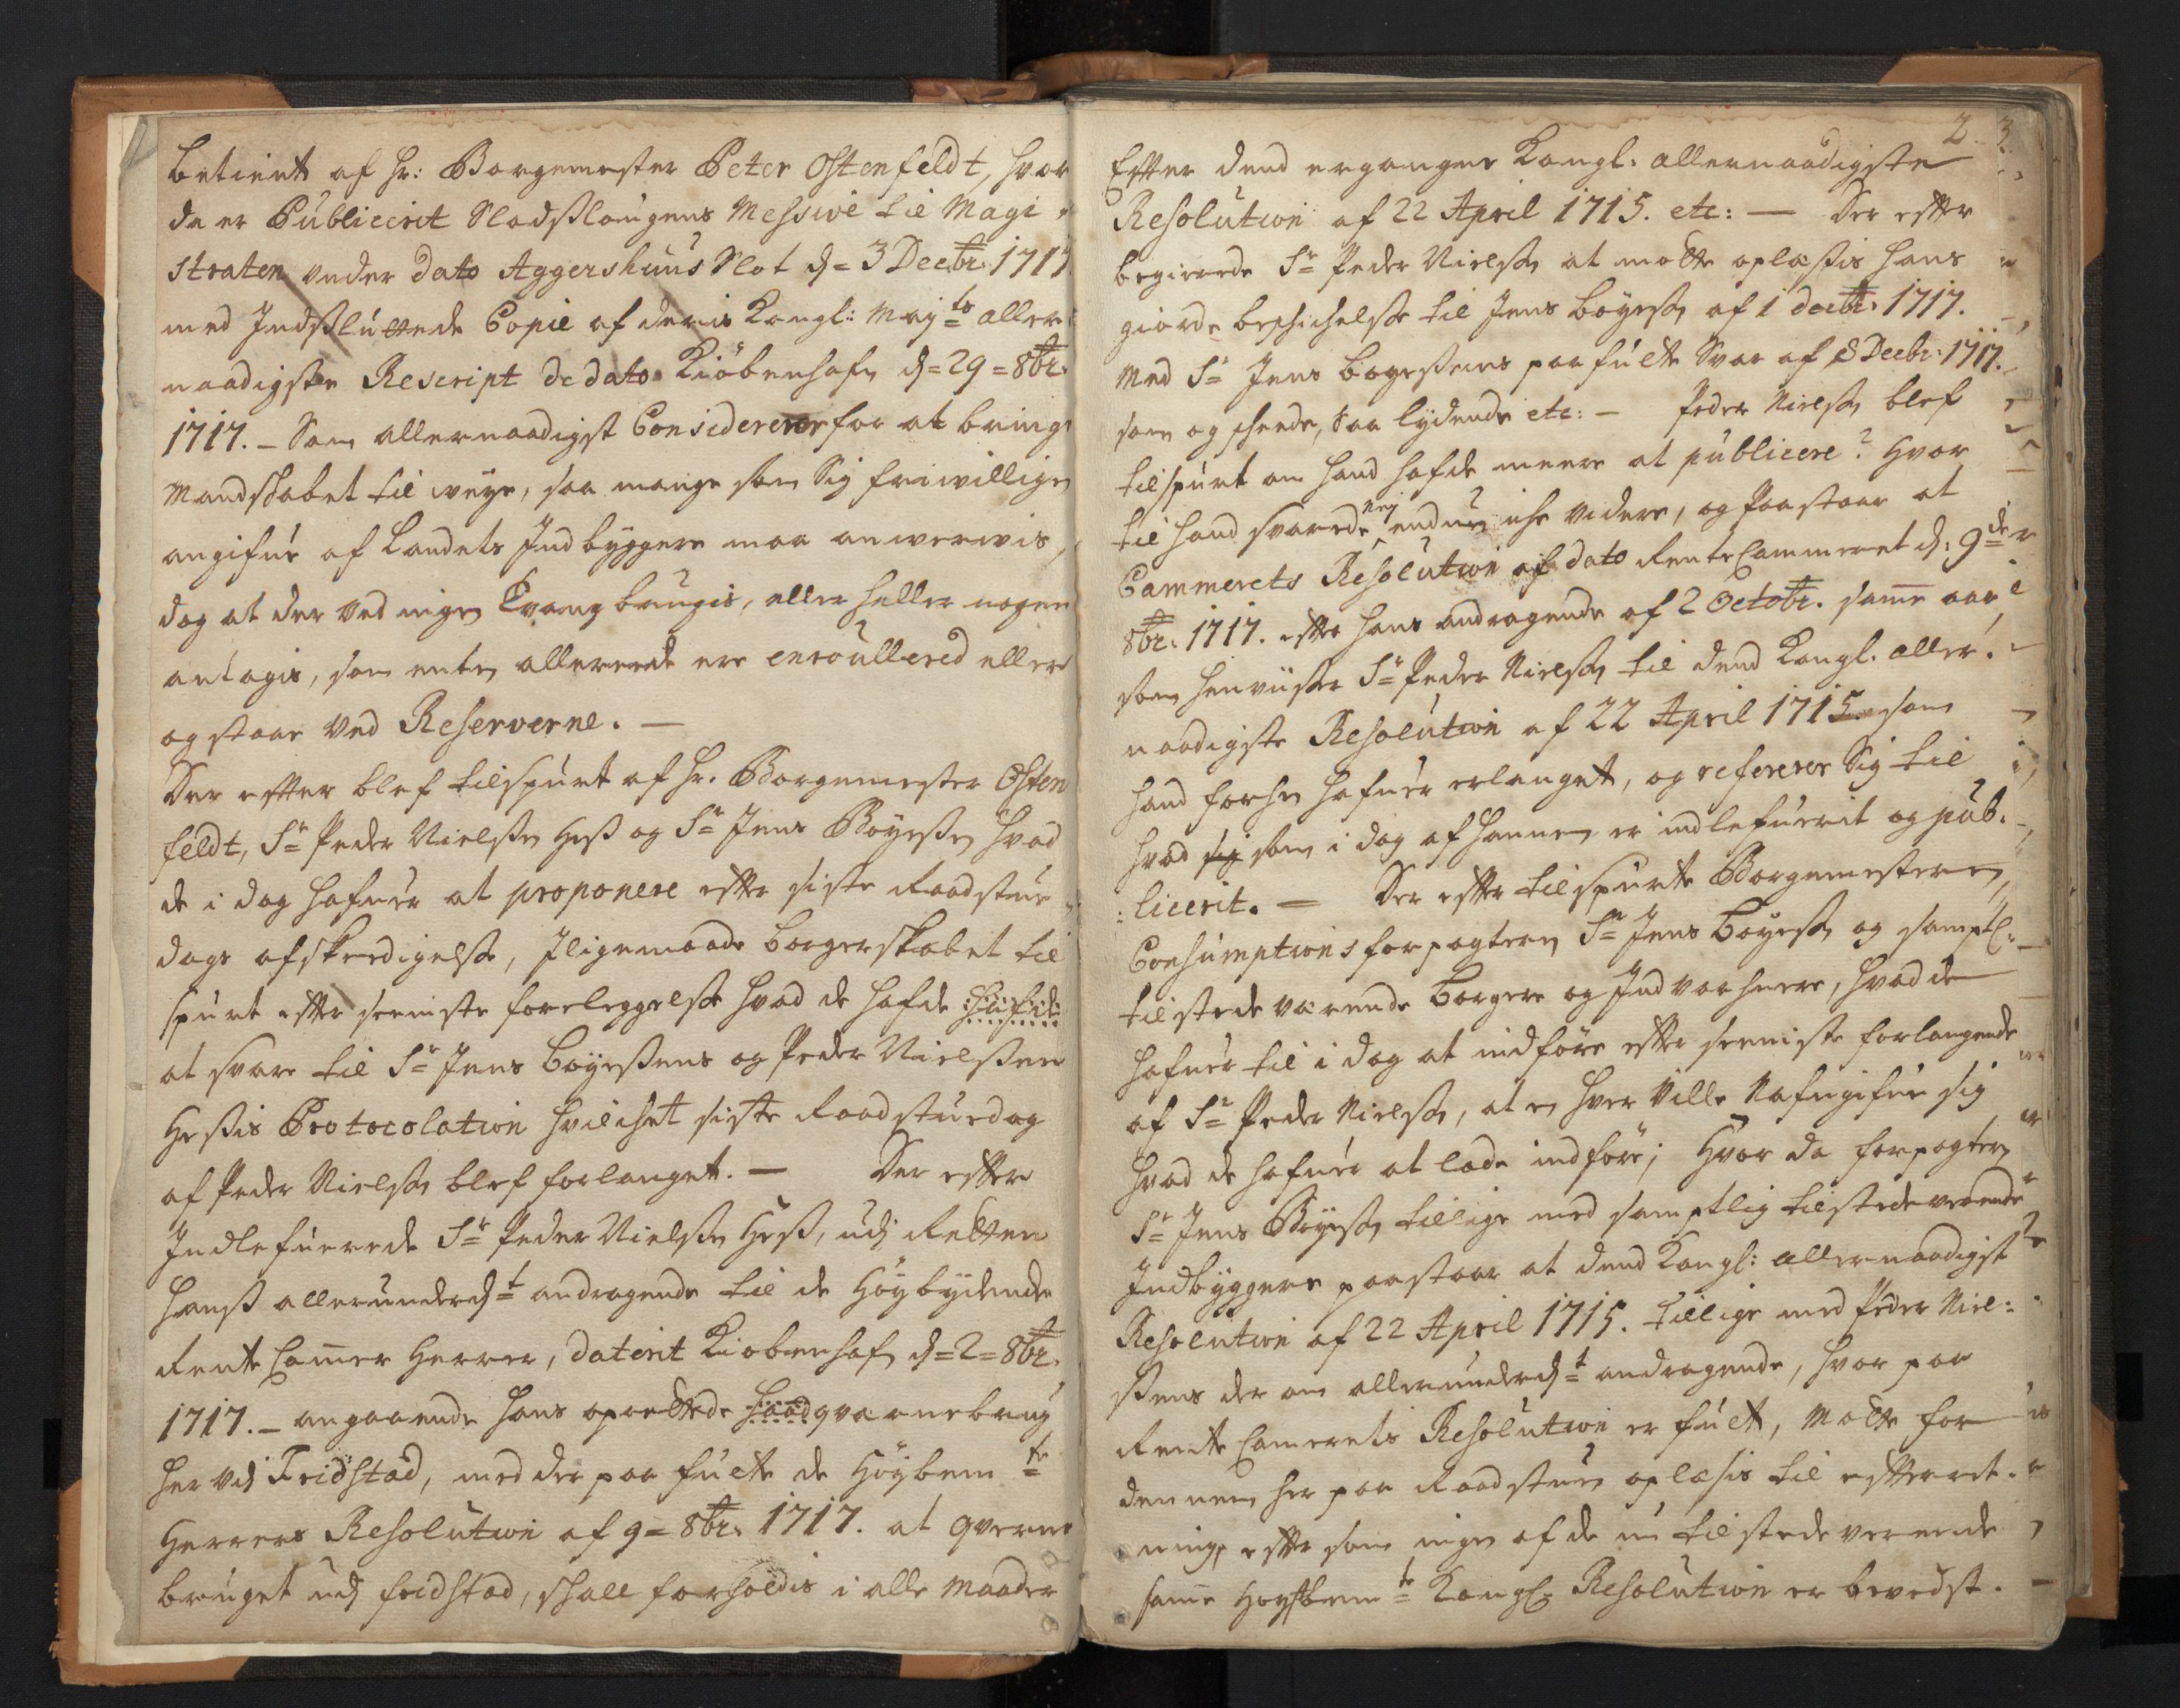 betient af Hr: Borgemester Peter Ostenfeldt, hvor
da er Publicerit Slodsslougens Messive til Magi
straten under dato Aggershuus Slot d= 3 Decbr: 1717
med Indsluttede Copie af deris Kongl: May:ts aller
naadigste Rescript de dato Kiöbenhafn d= 29 = 8br:
1717. – Som allernaadigst Considererer for at bringe
Mandskabet til weye, saa mange som Sig friwilligen
angifue af Landets Indbyggere maa anwerwis,
dog at der ved ingen Twang brugis, eller heller nogen
antagis, som enten allerede ere enroullered eller
og staar ved Reserverne. –
Der effter blef tilspurt af Hr. Borgemester Osten
feldt, Sr Peder Nielssen Hess og Sr Jens Boyessen hvad
de i dag hafuer at proponere effter siste Raadstue
dags afskeedigelsse, Iligemaade borgerskabet til
spurt effter seeniste foreleggelsse hvad de hafde
at svare til Sr Jens Boyessens og Peder Nielssen
Hessis Protocolation hvilchet siste Raadstuedag
af Peder Nielssen blef forlanget. – Der effter
Indlefuerede Sr Peder Nielssen Hess, udj Retten
Hanss allerunderd:t andragende til de Höybydende
Rente Cammer Herrer, daterit Kiobenhafn d= 2 = 8br.
1717. – angaaende hans oprettede Haandqvarnebrug
her ved Fridstad, med der paa fulte de Höybem:te
Herrers Resolution af 9 = 8br: 1717. at qverne
bruget udj fridstad, skall forholdis i alle maader
2 3
Effter dend ergangne Kongl: allernaadigste
Resolution af 22 April 1715. etc: – Der effter
begierede Sr Peder Nielssen at motte oplæssis hans
giorde beskichelsse til Jens Boyessen af 1 decbr. 1717.
Med Sr Jens Boyessens paafulte Svar af 8 Decbr: 1717.
som og skeede, saa lydende etc: – Peder Nielssen blef
tilspurt om hand hafde meere at publicere? Hvor
til hand svarede nej endnu iche videre, og paastaar at
Cammerets Resolution af dato RenteCammeret d: 9de
8br: 1717. effter hans andragende af 2 Octobr. samme aar,
som henviisser Sr Peder Nielssen til dend Kongl. aller:
naadigste Resolution af 22 April 1715. som
hand forhen hafuer erlanget, og refererer Sig til
hvad sig som i dag af hannem er indlefuerit og pub:
:licerit. – Der effter tilspurte Borgemesteren
Consumptions forpagteren Sr Jens Boyessen og samptl:
tilstede værende borgere og Indvaahnere, hvad de
hafuer til i dag at indföre effter seeniste forlangende
af Sr Peder Nielssen, at en hver Ville Nafngifue sig
hvad de hafuer at lade indföre; Hvor da forpagteren
Sr Jens Boyessen tillige med samptlig tilstedeverende
Indbyggere paastaar at dend Kongl: allernaadigst
Resolution af 22 April 1715. tillige med Peder Niel:
ssens der om allerunderd:t andragende, hvor paa
Rente Camerets Resolution er fult, Motte for
dennem her paa Raadstuen oplæsis til effterret:
ning, effter som ingen af de nu tilstede verende
samme Höystbem:te Kongl: Resolution er bevidst. –